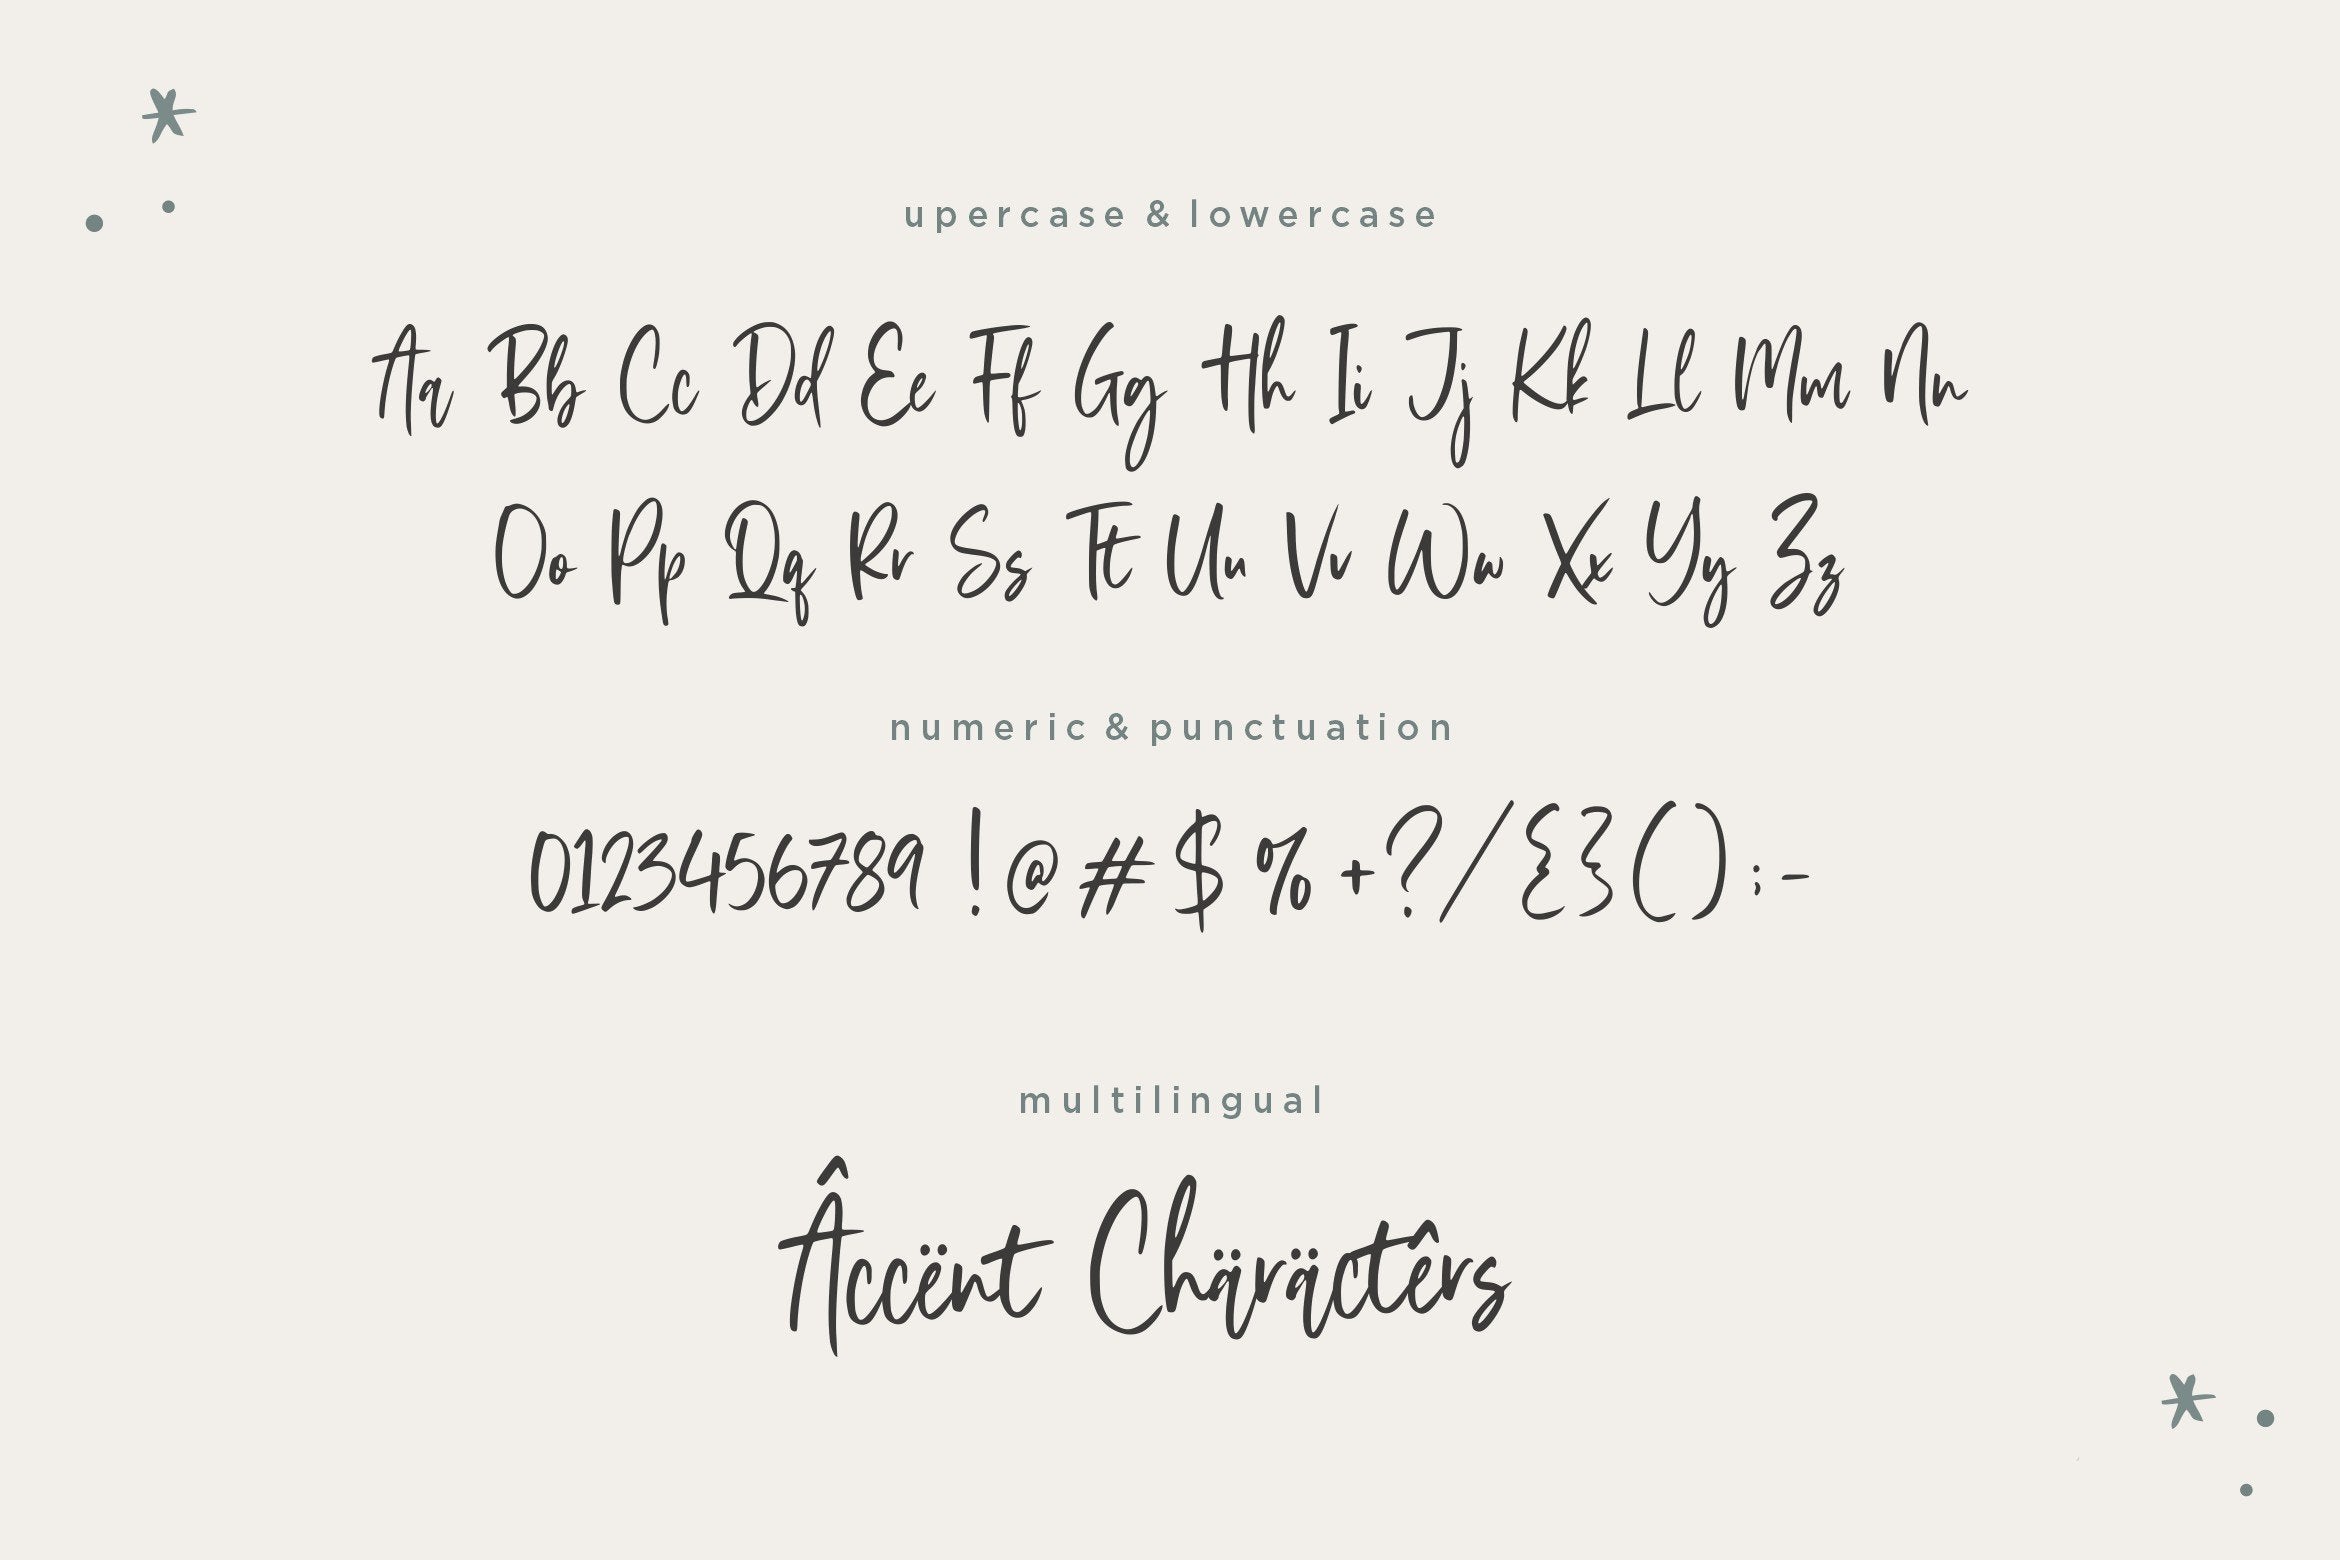 upercase & lowercase
Aa Bb Cc Dd Ee Ff Gg Hh Ii Jj Kk Ll Mm Nn
Oo Pp Qq Rr Ss Tt Uu Vv Ww Xx Yy Zz
numeric & punctuation
0123456789 !@#$%+?/{}();-
multilingual
Âccënt Chäräctêrs